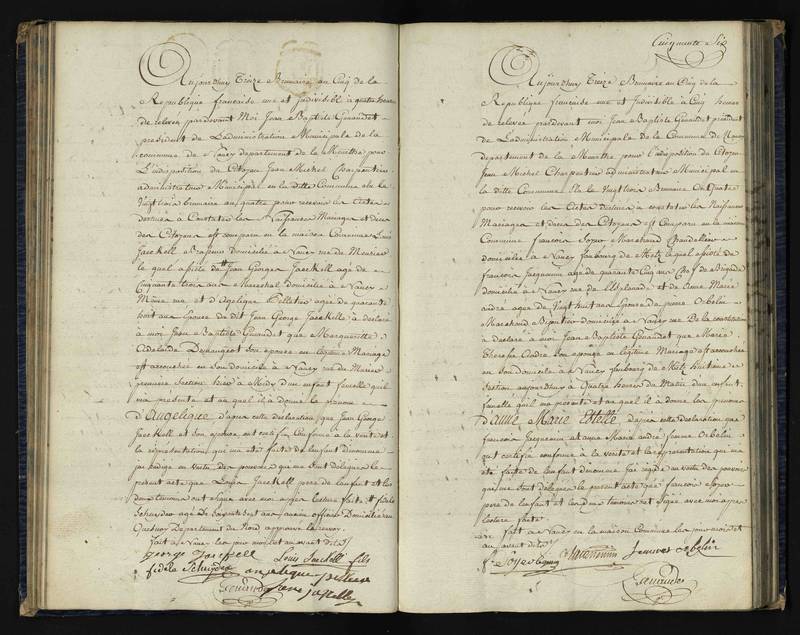 Aujourd'huy Treize Brumaire an Cinq de la
Republique française une et Indivisible à quatre heures
de relevée pardevant Moi Jean Baptiste Geraudet
president de L'administration Municipale de la
commune de Nancy departement de la Meurthe pour
L'indisposition du Citoyen Jean Michel Charpentier
administrateur Municipal en la ditte Commune elu le
vingt brumaire an quatre pour recevoir les Actes
destinés à Constater les Naissances Mariages et décès
des Citoyens est comparu en la maison Commune Louis
Jaeckell Brasseur domicilié à Nancy rue de
le quel assisté de Jean Georges Jaeckell agé de
Cinquante trois ans domicilié à Nancy
Même rue et d'Agelique Pelletier agée de quarante
huit ans Epouse du dit Jean George Jaeckelle à déclaré
à moi Jean Baptiste Geraudet que Marguerite
Adelaide son epouse en légitime Mariage
est accouchée en son domicile à Nancy rue de
premiere Section hier à Midy d'un enfant femelle quil
ma présenté et au quel il à donné le prenom
d'Angelique d'après cette déclaration que Jean George
Jaeckell et son epouse ont certifié Conforme à la verité et
la représentation qui ma été faite de lenfant dénommé
jai rédigé en vertu des pouvoirs qui me sont délégués le
présent acte que Louis Jaeckell pere de lenfant et les
deux temoins ont signé avec moi après lecture faite
agé de Soixante Sept ans ancien officier Domicilié au
Quesnoy Departement du Nord approuvé le renvoy
fait à Nancy les jour mois et an avant dits
george Jaeckell Louis Jaeckell fils
angelique
Geraudet
Cinquante Six
Aujourd'huy Treize Brumaire an Cinq de la
Republique française une et Indivisible à Cinq heures
de relevée pardevant moi Jean Baptiste Geraudet président
de L'administration Municipale de la Commune de Nancy
departement de la Meurthe pour l'indisposition du Citoyen
Jean Michel Charpentier administrateur Municipal en
la ditte Commune Elu le Vingt Brumaire an Quatre
pour recevoir les Actes destinés à constater les Naissances
Mariages et décès des Citoyens est Comparu en la maison
Commune francois Soyer Marchand Chandellier
domicilié à Nancy faubourg de Metz le quel assisté de
francois Jacquemin agé de quarante Cinq ans Chef de Brigade
domicilié à Nancy rue de L'Esplanade et de Anne Marie
andré agée de Vingt huit ans Epouse de pierre
Marchand Bijoutier domiciliée à Nancy rue De la constitution
à déclaré à moi Jean Baptiste Geraudet que Marie
Therese son epouse en légitime Mariage est accouchée
en son Domicile à Nancy faubourg de Metz huitieme
section aujourd'huy à Quatre heures du Matin d'un enfant
femelle quil ma présenté et au quel il à donné les prenoms
d'anne Marie d'après cette déclaration que
francois Jacquemin et anne Marie andré femme
ont certifié conforme à la verité et la représentation qui ma
été faite de lenfant dénommé Jai rédigé en vertu des pouvoirs
qui me sont délégués le présent acte que francois Soyer
pere de lenfant et les deux temoins ont signé avec moi après
lecture faite
fait à Nancy en la maison Commune les jour mois et
an avant dits
Jacquemin femme
Geraudet